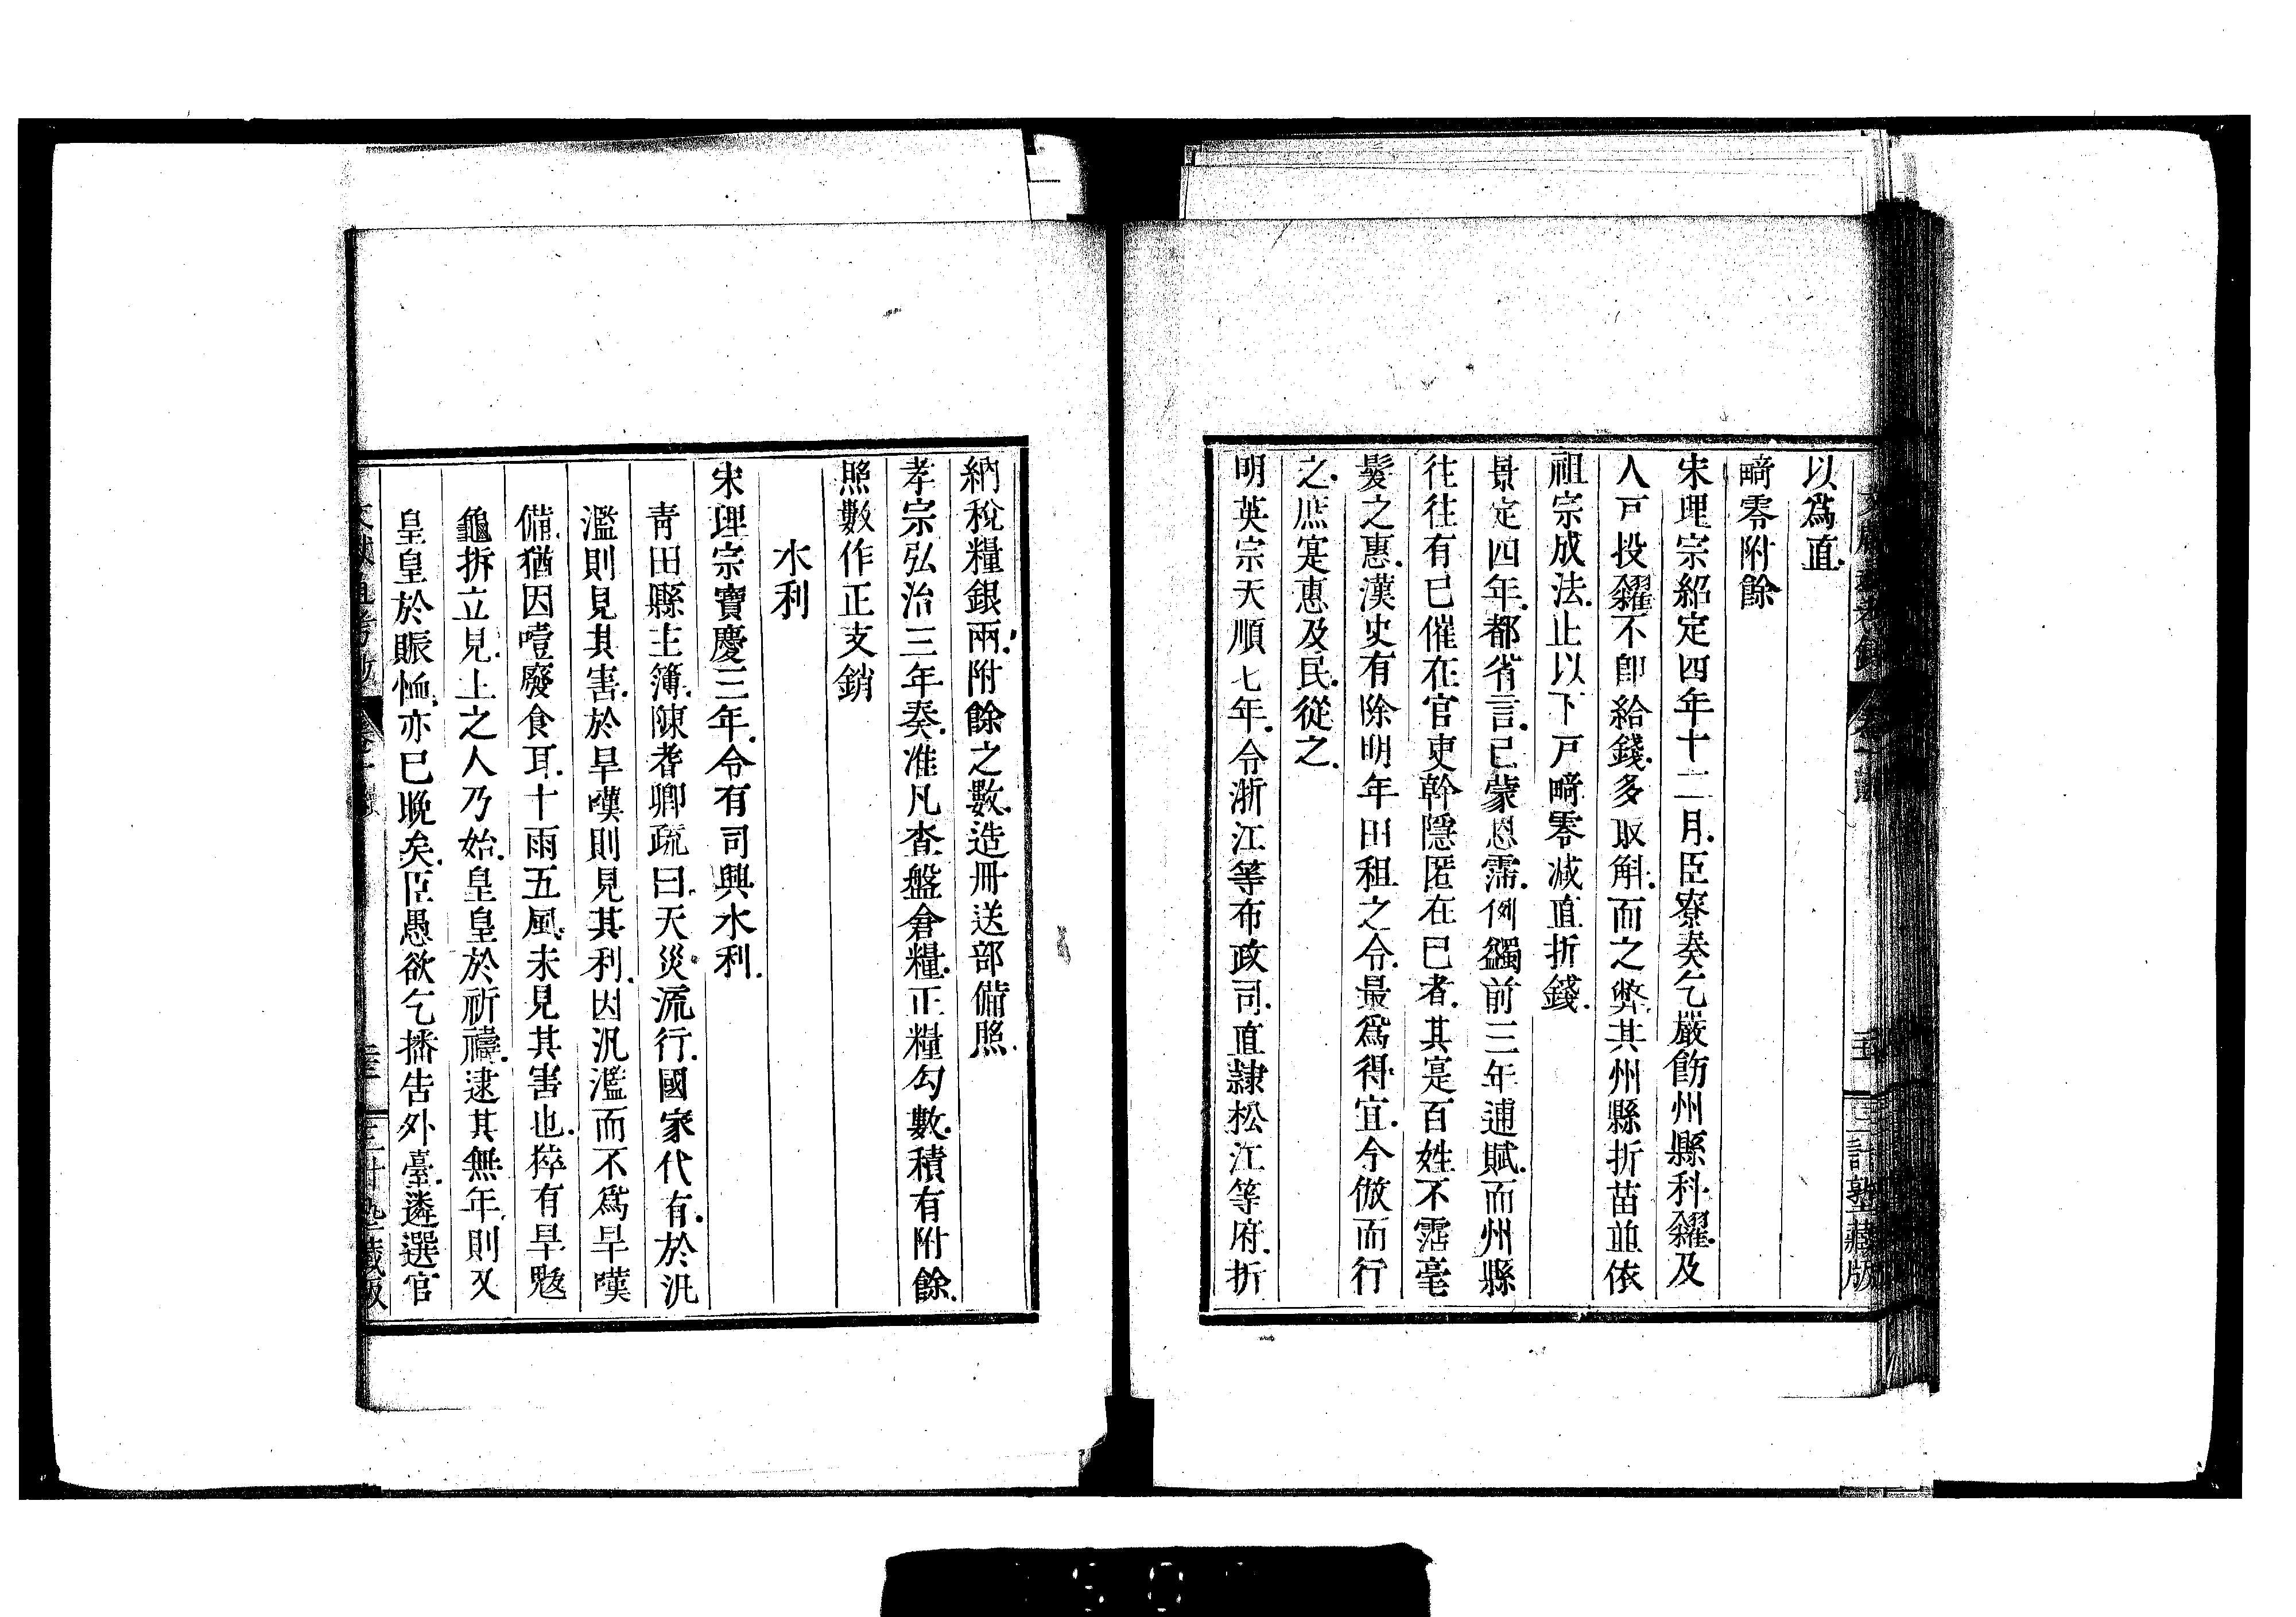 以爲直
畸零附餘
宋理宗紹定四年十二月臣寮奏乞嚴飭州縣科糴及
人戸投糴不即給錢多取斛而之弊其州縣折苗並依
祖宗成法止以下戸畸零減直折錢
景定四年都省言已蒙恩霈例蠲前三年逋賦而州縣
往往有已催在官吏幹隱匿在已者其寔百姓不霑毫
髮之惠漢史有除明年田租之令最爲得宜今倣而行
之庶寔惠及民從之
明英宗天順七年令浙江等布政司直隸松江等府折
納稅糧銀兩附餘之數造冊送部備照
孝宗弘治三年奏准凡查盤倉糧正糧勾數積有附餘
照數作正支銷
水利
宋理宗寶慶三年令有司興水利
青田縣主簿陳耆卿疏曰天災流行國家代有於汎
濫則見其害於旱暵則見其利因汎濫而不爲旱暵
備猶因噎廢食耳十雨五風未見其害也猝有旱魃
龜拆立見上之人乃始皇皇於祈禱逮其無年則又
皇皇於賑恤亦已晚矣臣愚欲乞播告外臺遴選官
三計塾藏版